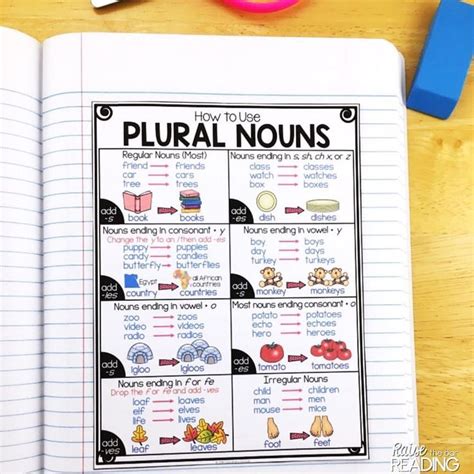 How to Use
PLURAL NOUNS
Regular Nouns (Most)
friend friends
car cars
tree trees
book books
add -s
Nouns ending in s, sh, ch x, or z
class classes
watch watches
box boxes
dish dishes
add -es
Nouns ending in consonant + y
Change the y to an i then add -es
puppy puppies
candy candies
butterfly butterflies
Egypt all African countries
country countries
add -ies
Nouns ending in vowel + y
boy boys
day days
turkey turkeys
monkey monkeys
add -s
Nouns ending in vowel + o
zoo zoos
video videos
radio radios
igloo igloos
add -s
Most nouns ending consonant + o
potato potatoes
echo echoes
hero heroes
tomato tomatoes
add -es
Nouns ending in f or fe
Drop the f or fe and add -ves
loaf loaves
elf elves
life lives
leaf leaves
add -ves
Irregular Nouns
child children
man men
mouse mice
foot feet
Raise the bar
READING